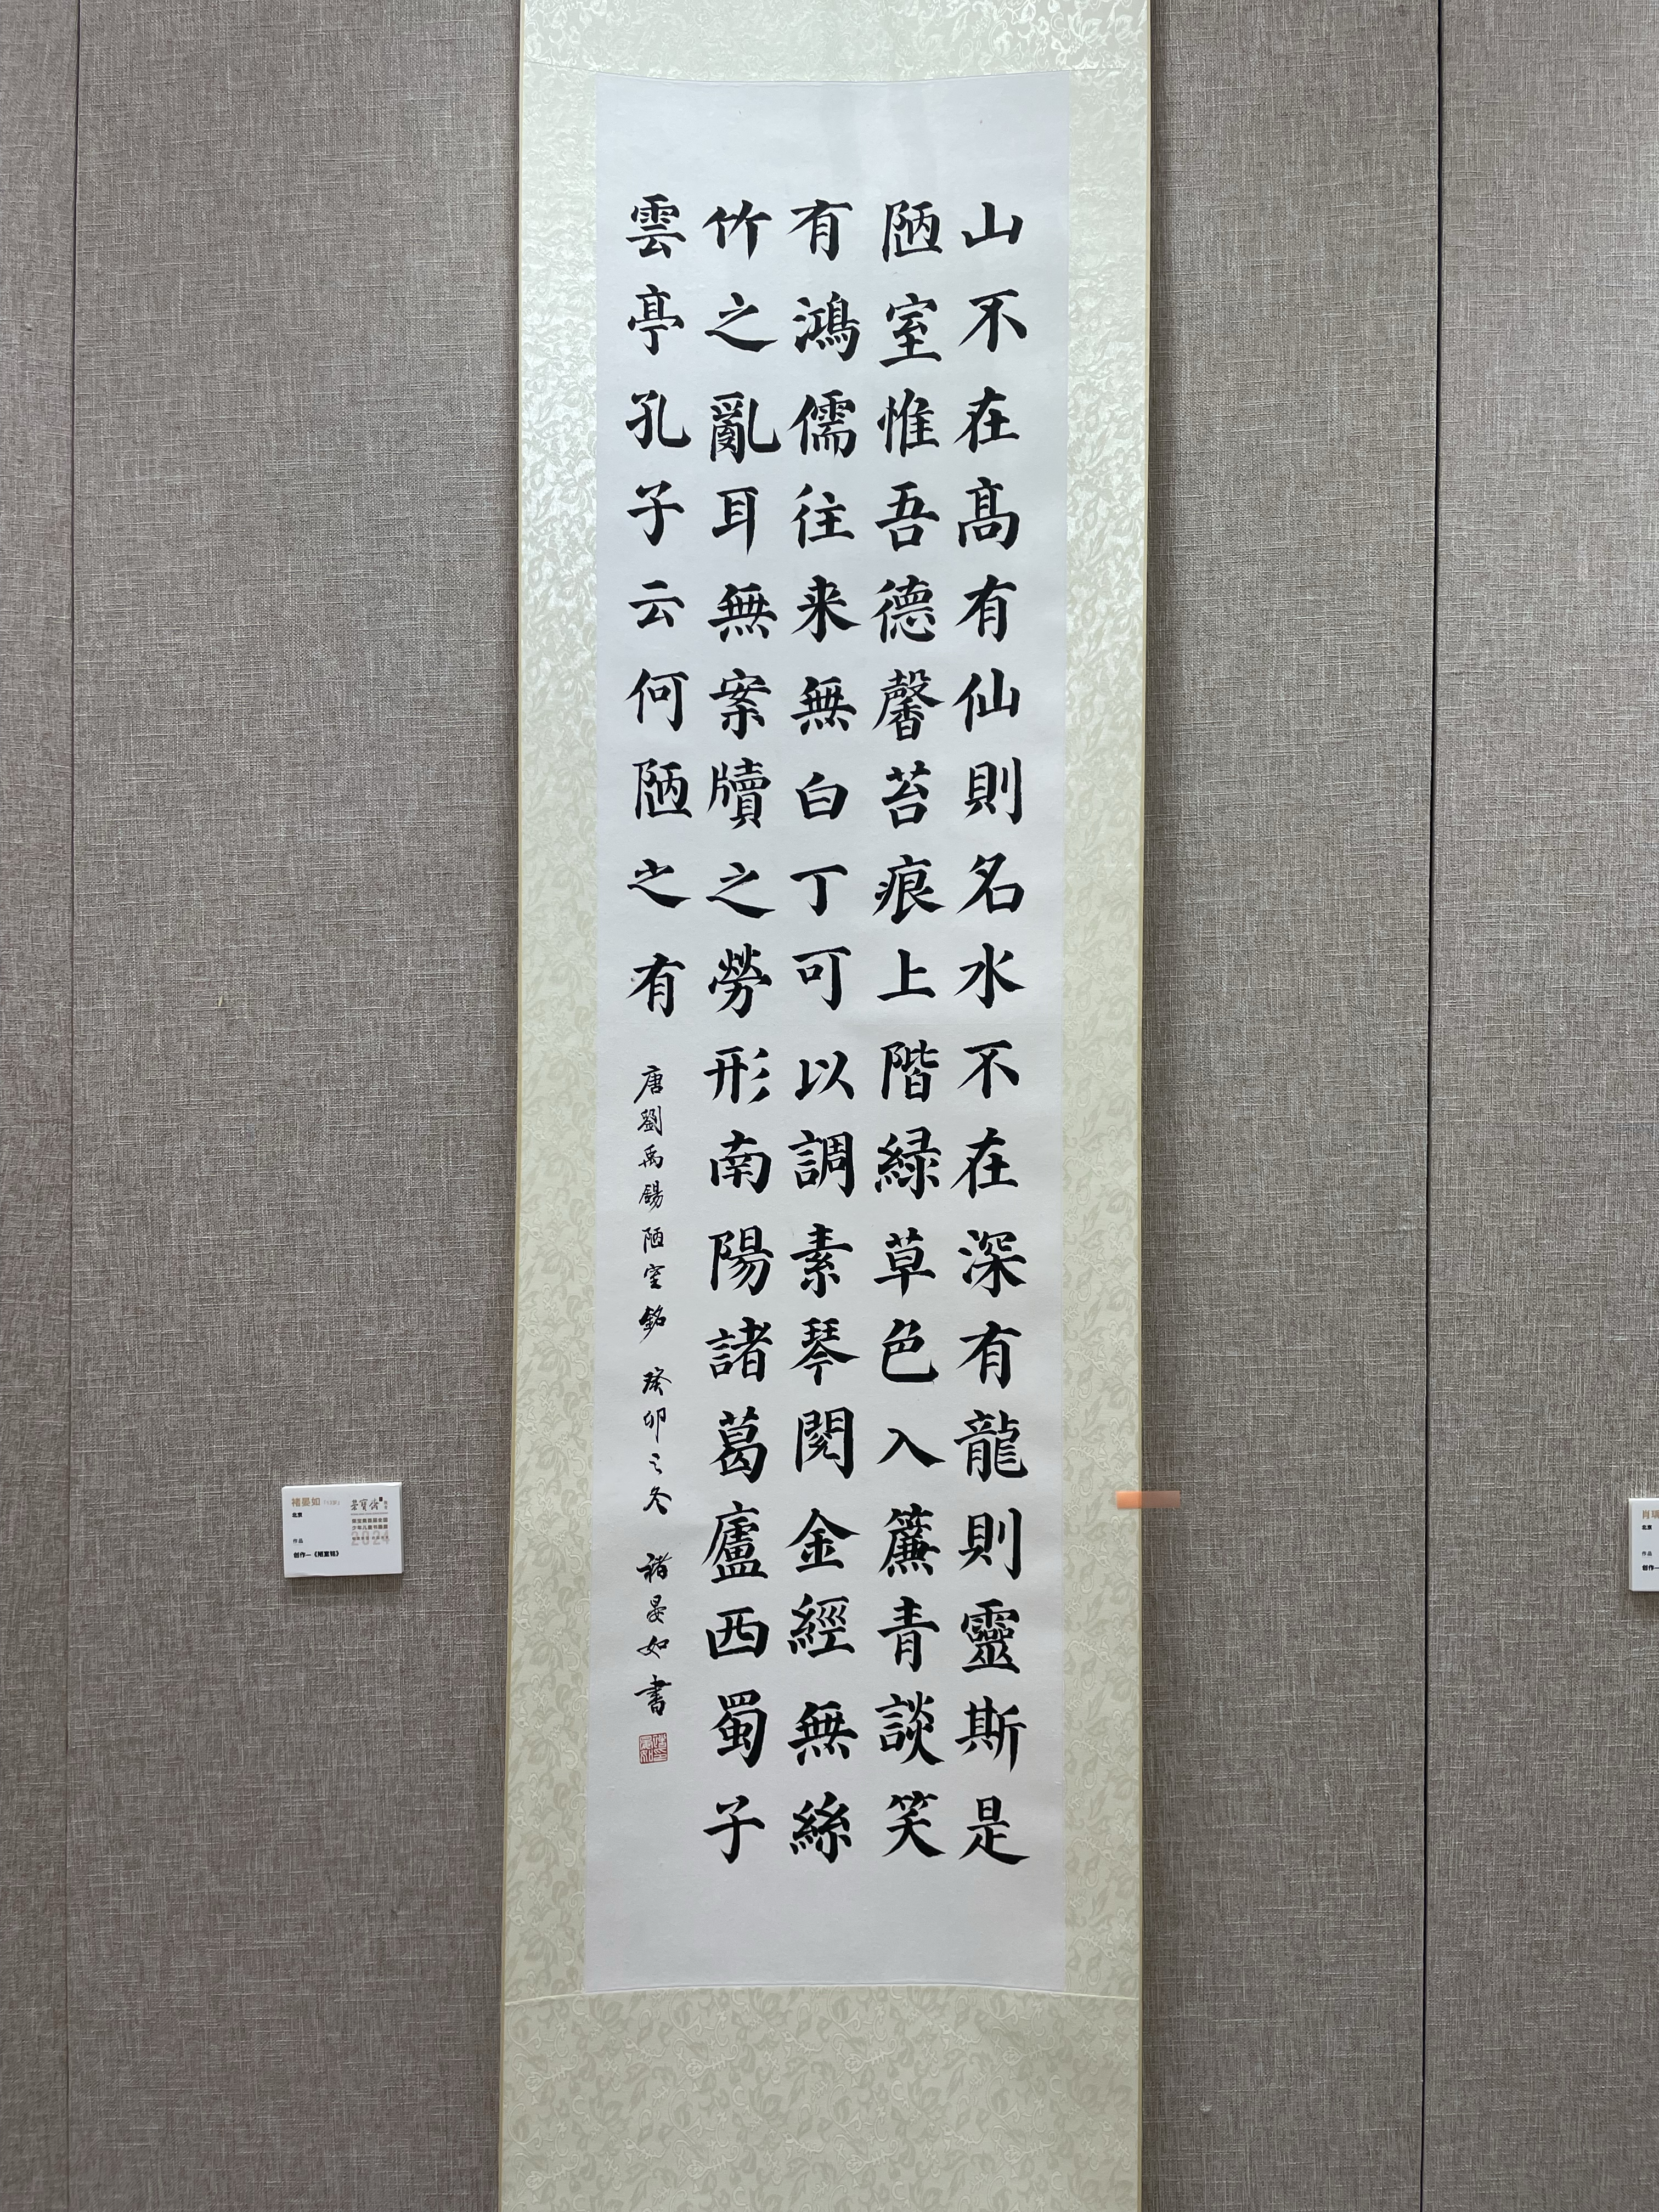 山不在髙有仙則名水不在深有龍則靈斯是
陋室惟吾德馨苔痕上階緑草色入簾青談笑
有鴻儒往来無白丁可以調素琴閱金經無絲
竹之亂耳無案牘之勞形南陽諸葛廬西蜀子
雲亭孔子云何陋之有
唐劉禹錫陋室銘 癸卯之冬 褚晏如書
褚晏如
北京
作品
创作—《陋室铭》
荣宝斋
2024
肖
北京
作品
创作—